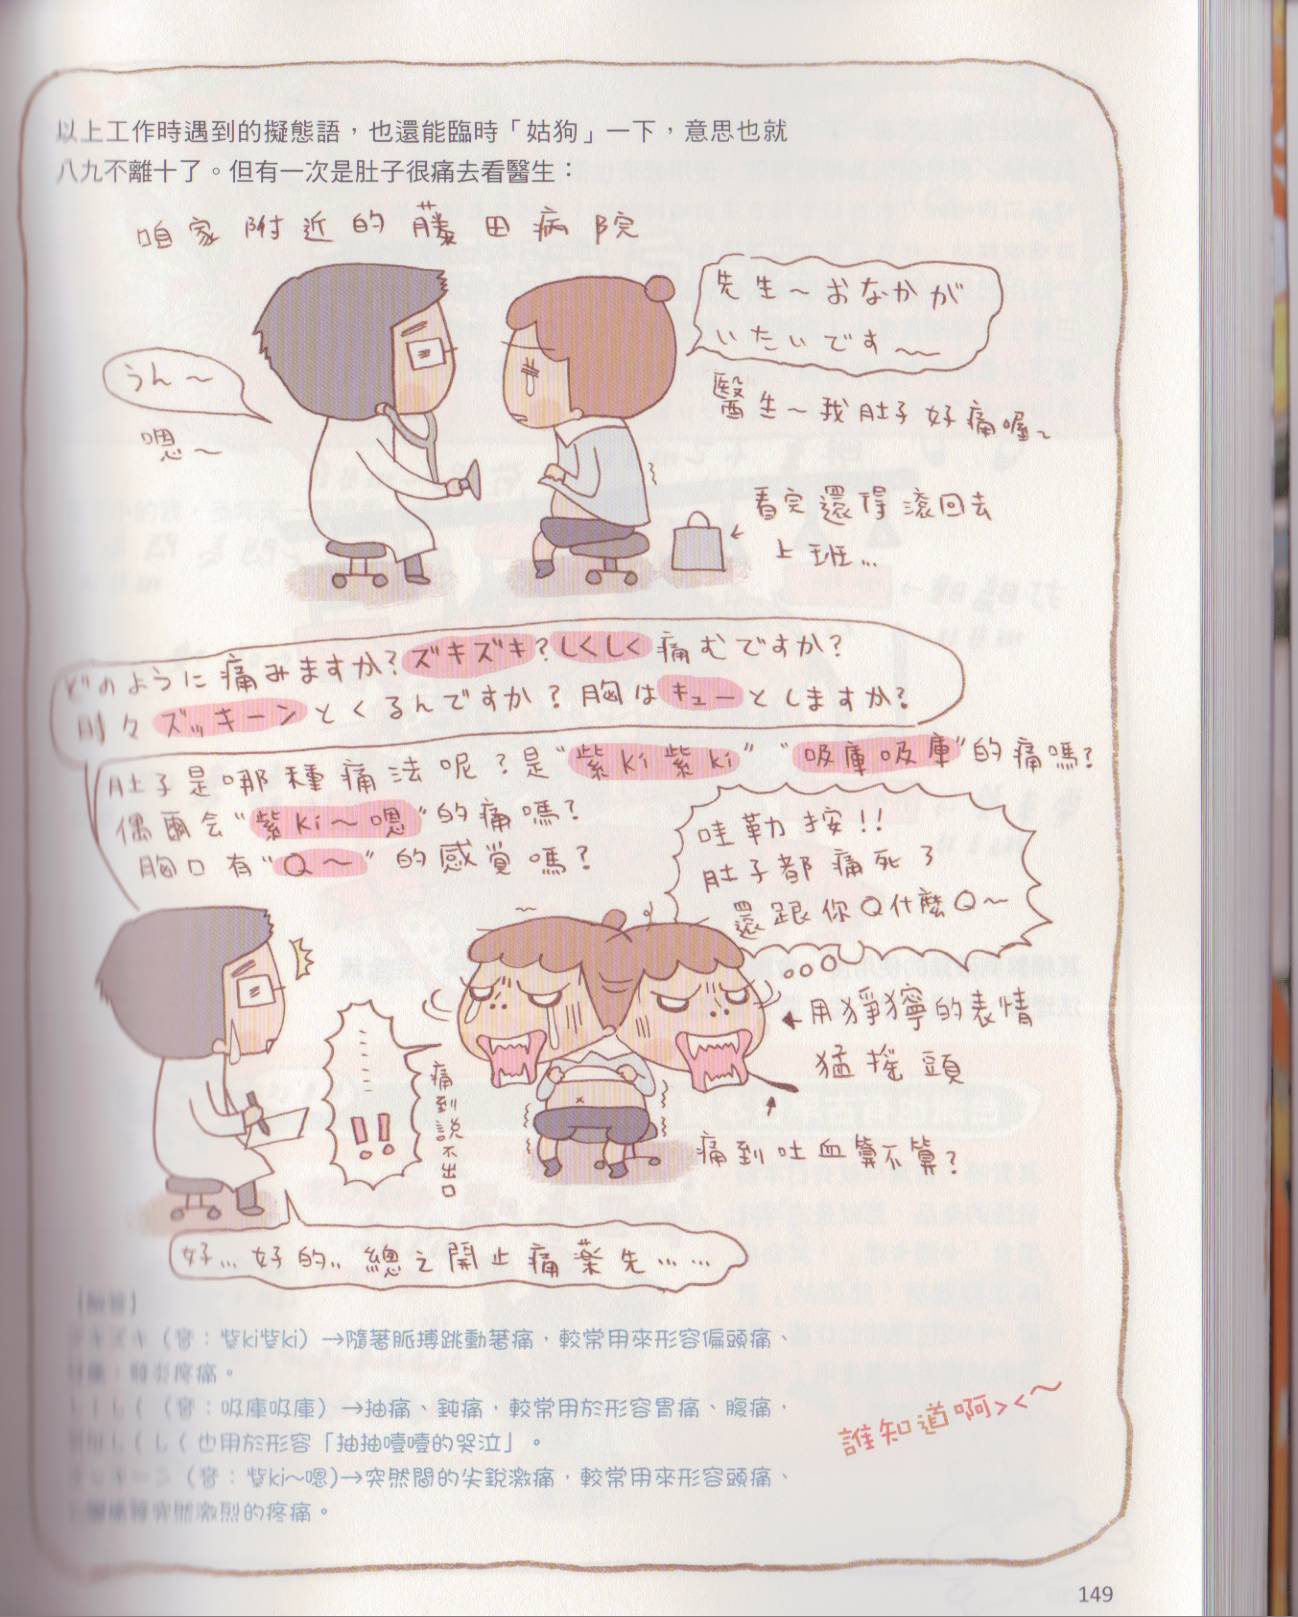 以上工作時遇到的擬態語，也還能臨時「姑狗」一下，意思也就
八九不離十了。但有一次是肚子很痛去看醫生：
咱家附近的藤田病院
先生～おなかが
いたいです～
うん～
嗯～
醫生～我肚子好痛喔～
看完還得滾回去
上班…
どのように痛みますか？ズキズキ？しくしく痛むですか？
時々ズッキーンとくるんですか？胸はキューとしますか？
肚子是哪種痛法呢？是"紫ki紫ki""吸庫吸庫"的痛嗎？
偶爾会"紫ki～嗯"的痛嗎？
胸口有"Q～"的感覚嗎？
哇勒按!!
肚子都痛死了
還跟你Q什麼Q～
用猙獰的表情
猛搖頭
……!!
痛到說不出口
痛到吐血算不算？
好…好的..總之開止痛藥先……
キズキ（音：紫ki紫ki）→隨著脈搏跳動著痛，較常用來形容偏頭痛、
疼痛。
（音：吸庫吸庫）→抽痛、鈍痛，較常用於形容胃痛、腹痛，
しくしく也用於形容「抽抽噎噎的哭泣」。
（音：紫ki～嗯)→突然間的尖銳激痛，較常用來形容頭痛、
突然激烈的疼痛。
誰知道啊><～
149